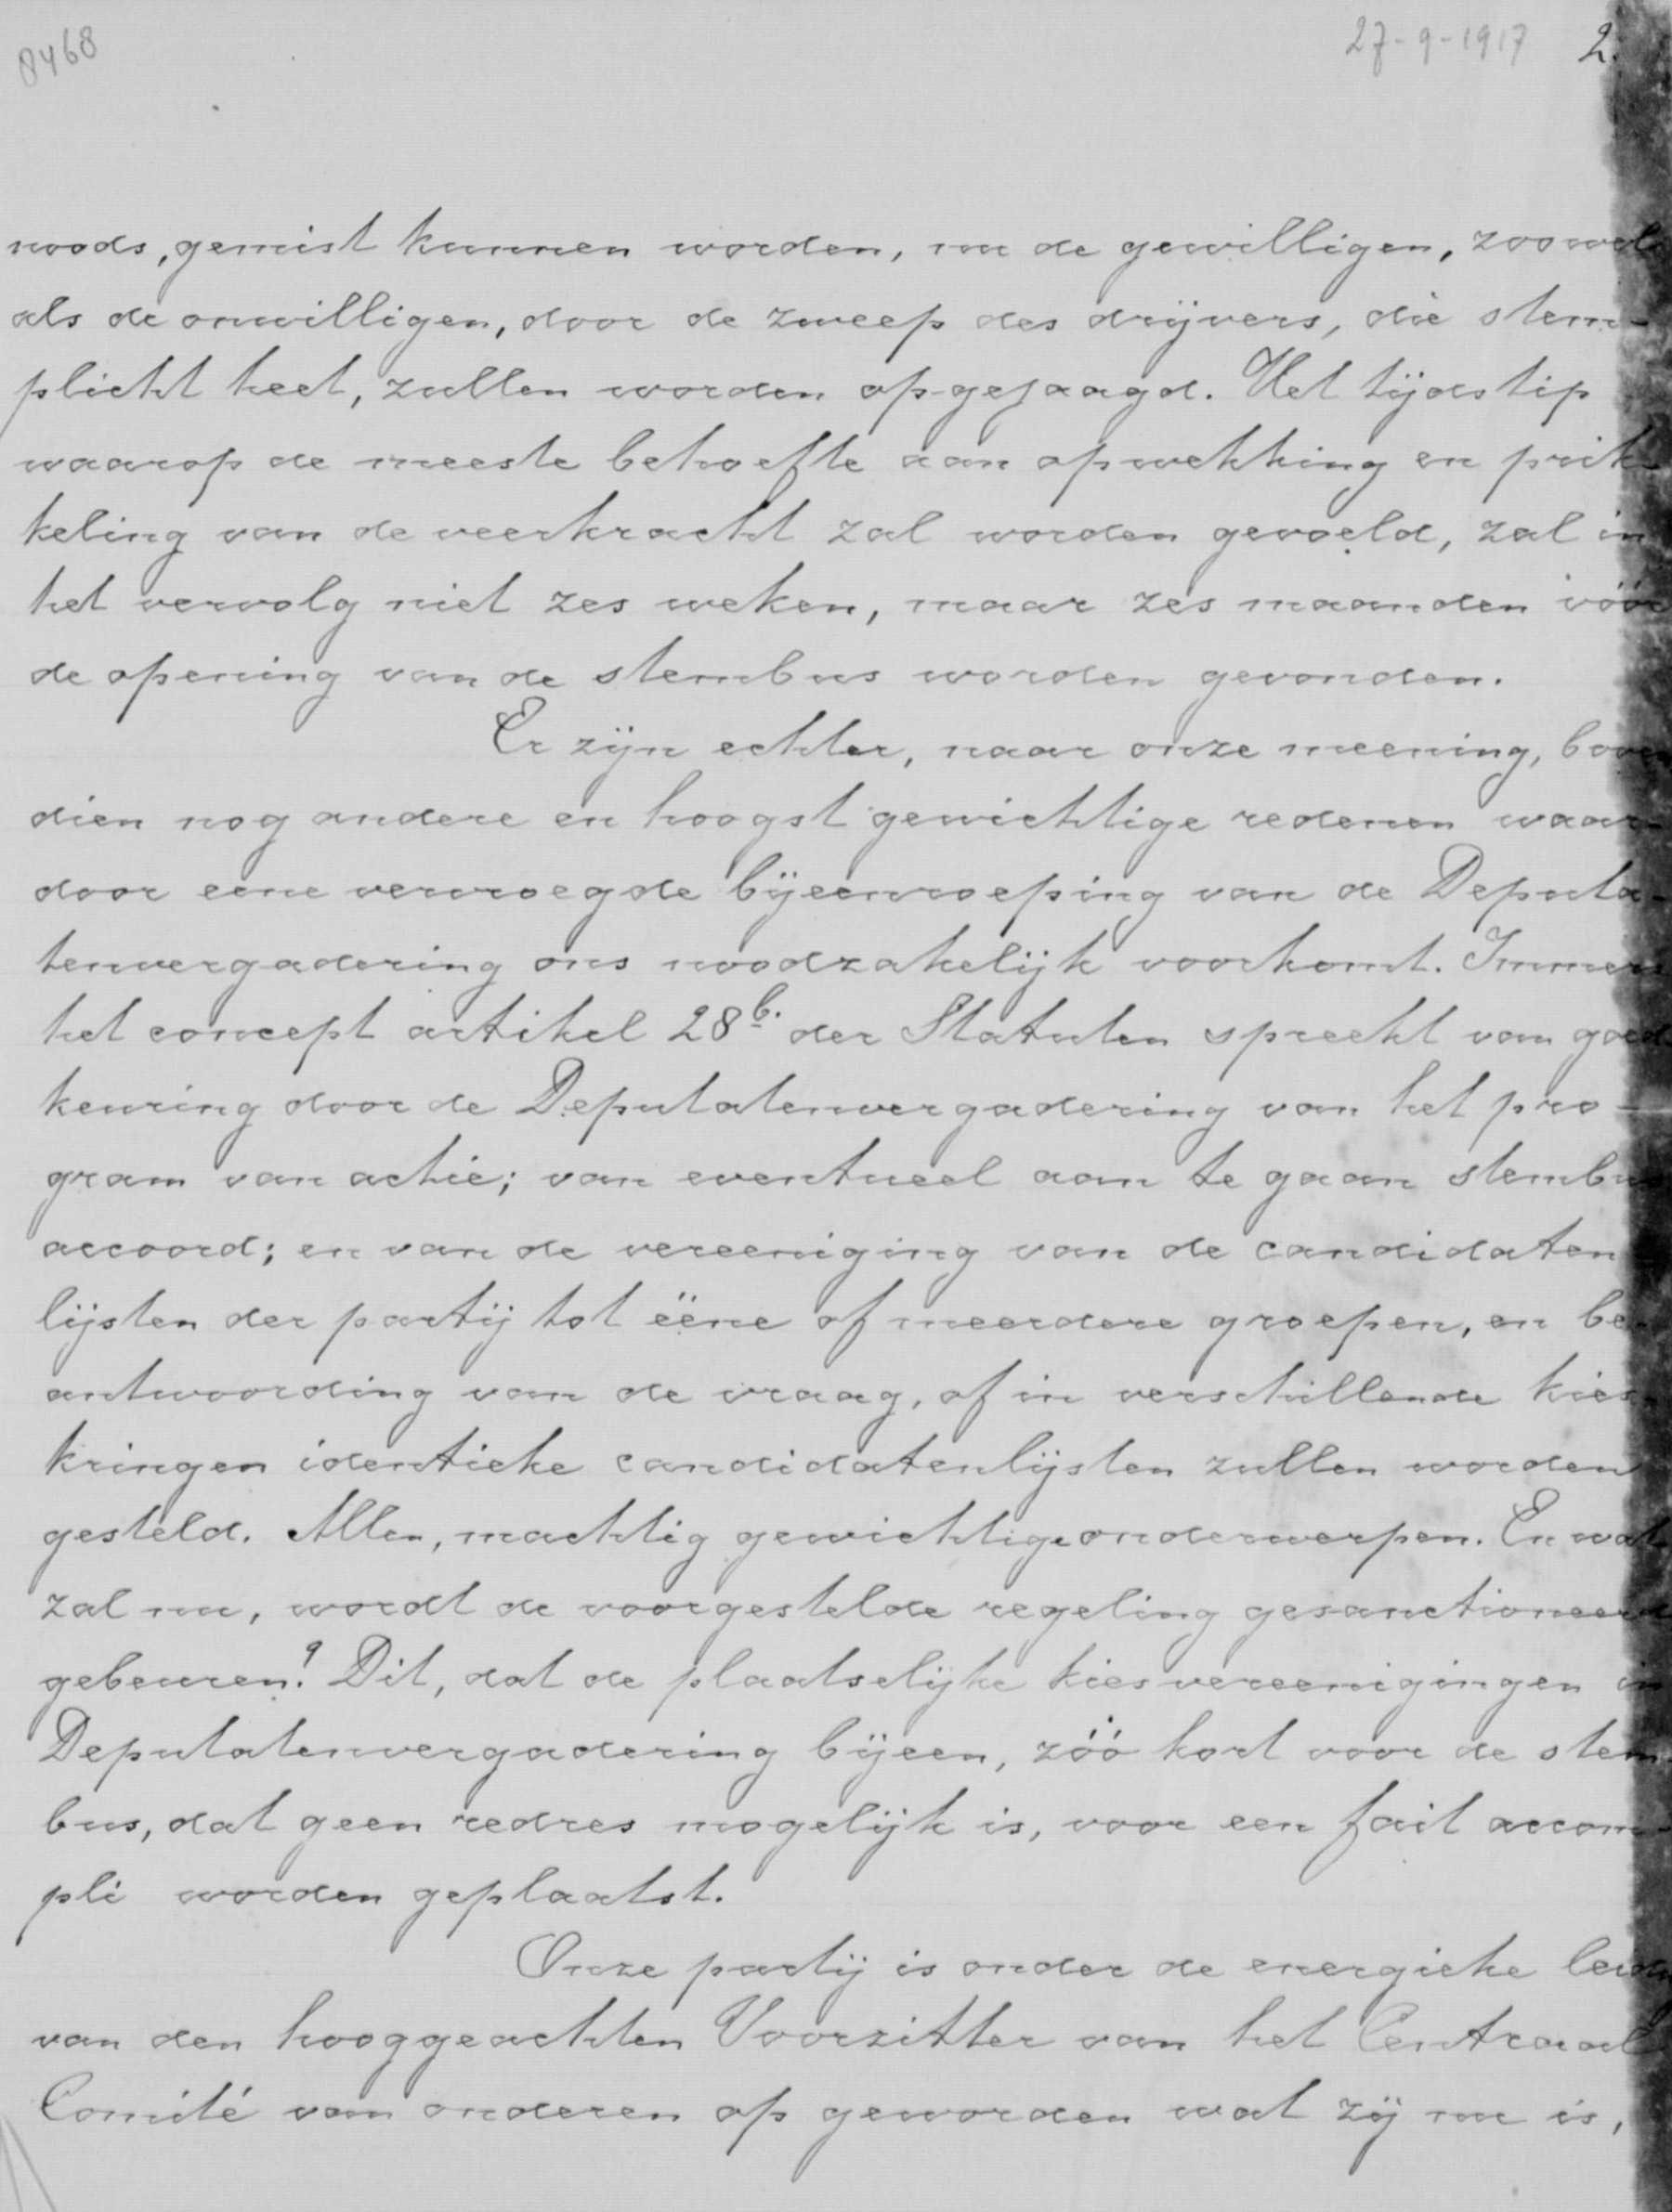 8468
27-9-1917 2.
noods, gemist kunnen worden, nu de gewilligen, zoowel
als de onwilligen, door de zweep des drijvers, die stem-
plicht heet, zullen worden opgejaagd. Het tijdstip
waarop de meeste behoefte aan opwekking en prik-
keling van de veerkracht zal worden gevoeld, zal in
het vervolg niet zes weken, maar zes maanden vóór
de opening van de stembus worden gevonden.
Er zijn echter, naar onze meening, boven
dien nog andere en hoogst gewichtige redenen waar-
door eene vervroegde bijeenroeping van de Deputa-
tenvergadering ons noodzakelijk voorkomt. Immers
het concept artikel 28b. der Statuten spreekt van goed
keuring door de Deputatenvergadering van het pro-
gram van actie; van eventueel aan te gaan stembus
accoord; en van de vereeniging van de candidaten
lijsten der partij tot ééne of meerdere groepen, en be-
antwoording van de vraag, of in verschillende kies-
kringen identieke candidatenlijsten zullen worden
gesteld. Allen, machtig gewichtige onderwerpen. En wat
zal nu, wordt de voorgestelde regeling gesanctioneerd
gebeuren? Dit, dat de plaatselijke kiesvereenigingen in
Deputatenvergadering bijeen, zóó kort voor de stem-
bus, dat geen redres mogelijk is, voor een fait accom-
pli worden geplaatst.
Onze partij is onder de energieke
van den hooggeachten Voorzitter van het Centraal
Comité van onderen op geworden wat zij nu is,